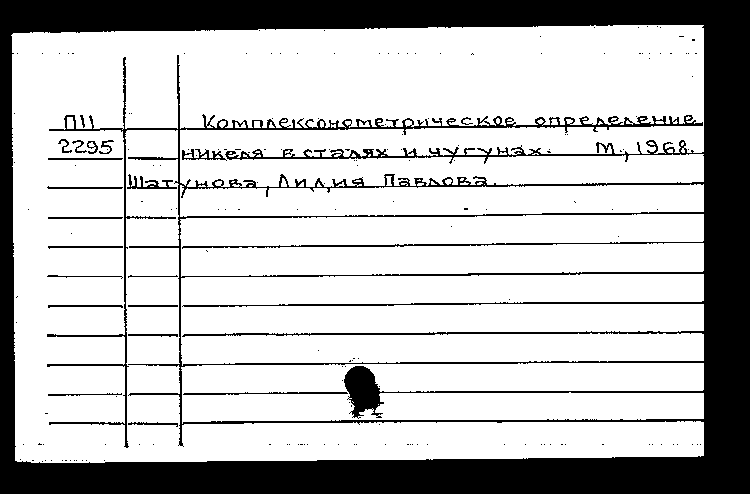 П11 Комплексонометрическое определение
2295 никеля в сталях и чугунах. М., 1968.
Шатунова, Лидия Павлова.